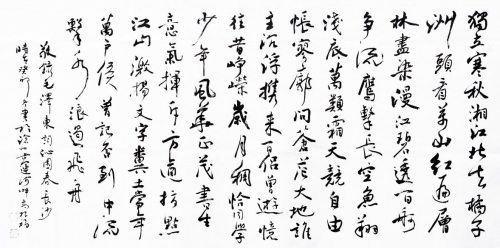 獨立寒秋湘江北去橘子
洲頭看萬山紅遍層
林盡染漫江碧透百舸
爭流鷹擊長空魚翔
淺底萬類霜天競自由
悵寥廓問蒼茫大地誰
主沉浮攜來百侶曾遊憶
往昔崢嶸歲月稠恰同學
少年風華正茂書生
意氣揮斥方遒指點
江山激揚文字糞土當年
萬戶侯曾記否到中流
擊水浪遏飛舟
敬錄毛澤東詞沁園春長沙
時在癸卯